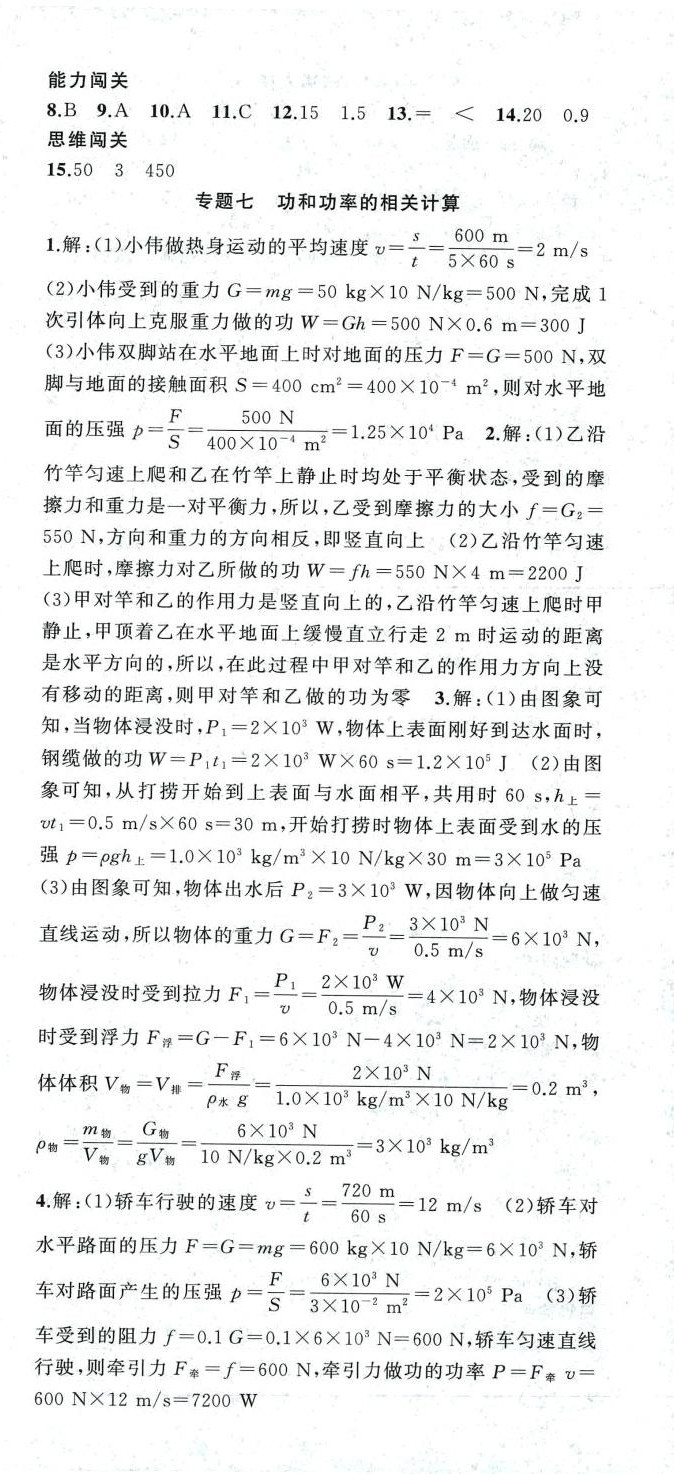 能力闯关
8.B 9.A 10.A 11.C 12.15 1.5 13.= < 14.20 0.9
思维闯关
15.50 3 450
专题七 功和功率的相关计算
1.解:(1)小伟做热身运动的平均速度 v=s/t=600 m/(5×60 s)=2 m/s
(2)小伟受到的重力 G=mg=50 kg×10 N/kg=500 N,完成 1
次引体向上克服重力做的功 W=Gh=500 N×0.6 m=300 J
(3)小伟双脚站在水平地面上时对地面的压力 F=G=500 N,双
脚与地面的接触面积 S=400 cm²=400×10⁻⁴ m²,则对水平地
面的压强 p=F/S=500 N/(400×10⁻⁴ m²)=1.25×10⁴ Pa 2.解:(1)乙沿
竹竿匀速上爬和乙在竹竿上静止时均处于平衡状态,受到的摩
擦力和重力是一对平衡力,所以,乙受到摩擦力的大小 f=G₂=
550 N,方向和重力的方向相反,即竖直向上 (2)乙沿竹竿匀速
上爬时,摩擦力对乙所做的功 W=fh=550 N×4 m=2200 J
(3)甲对竿和乙的作用力是竖直向上的,乙沿竹竿匀速上爬时甲
静止,甲顶着乙在水平地面上缓慢直立行走 2 m 时运动的距离
是水平方向的,所以,在此过程中甲对竿和乙的作用力方向上没
有移动的距离,则甲对竿和乙做的功为零 3.解:(1)由图象可
知,当物体浸没时,P₁=2×10³ W,物体上表面刚好到达水面时,
钢缆做的功 W=P₁t₁=2×10³ W×60 s=1.2×10⁵ J (2)由图
象可知,从打捞开始到上表面与水面相平,共用时 60 s,h上=
vt₁=0.5 m/s×60 s=30 m,开始打捞时物体上表面受到水的压
强 p=ρgh上=1.0×10³ kg/m³×10 N/kg×30 m=3×10⁵ Pa
(3)由图象可知,物体出水后 P₂=3×10³ W,因物体向上做匀速
直线运动,所以物体的重力 G=F₂=P₂/v=3×10³ N/(0.5 m/s)=6×10³ N,
物体浸没时受到拉力 F₁=P₁/v=2×10³ W/(0.5 m/s)=4×10³ N,物体浸没
时受到浮力 F浮=G-F₁=6×10³ N-4×10³ N=2×10³ N,物
体体积 V物=V排=F浮/(ρ水 g)=2×10³ N/(1.0×10³ kg/m³×10 N/kg)=0.2 m³,
ρ物=m物/V物=G物/(gV物)=6×10³ N/(10 N/kg×0.2 m³)=3×10³ kg/m³
4.解:(1)轿车行驶的速度 v=s/t=720 m/60 s=12 m/s (2)轿车对
水平路面的压力 F=G=mg=600 kg×10 N/kg=6×10³ N,轿
车对路面产生的压强 p=F/S=6×10³ N/(3×10⁻² m²)=2×10⁵ Pa (3)轿
车受到的阻力 f=0.1 G=0.1×6×10³ N=600 N,轿车匀速直线
行驶,则牵引力 F牵=f=600 N,牵引力做功的功率 P=F牵 v=
600 N×12 m/s=7200 W